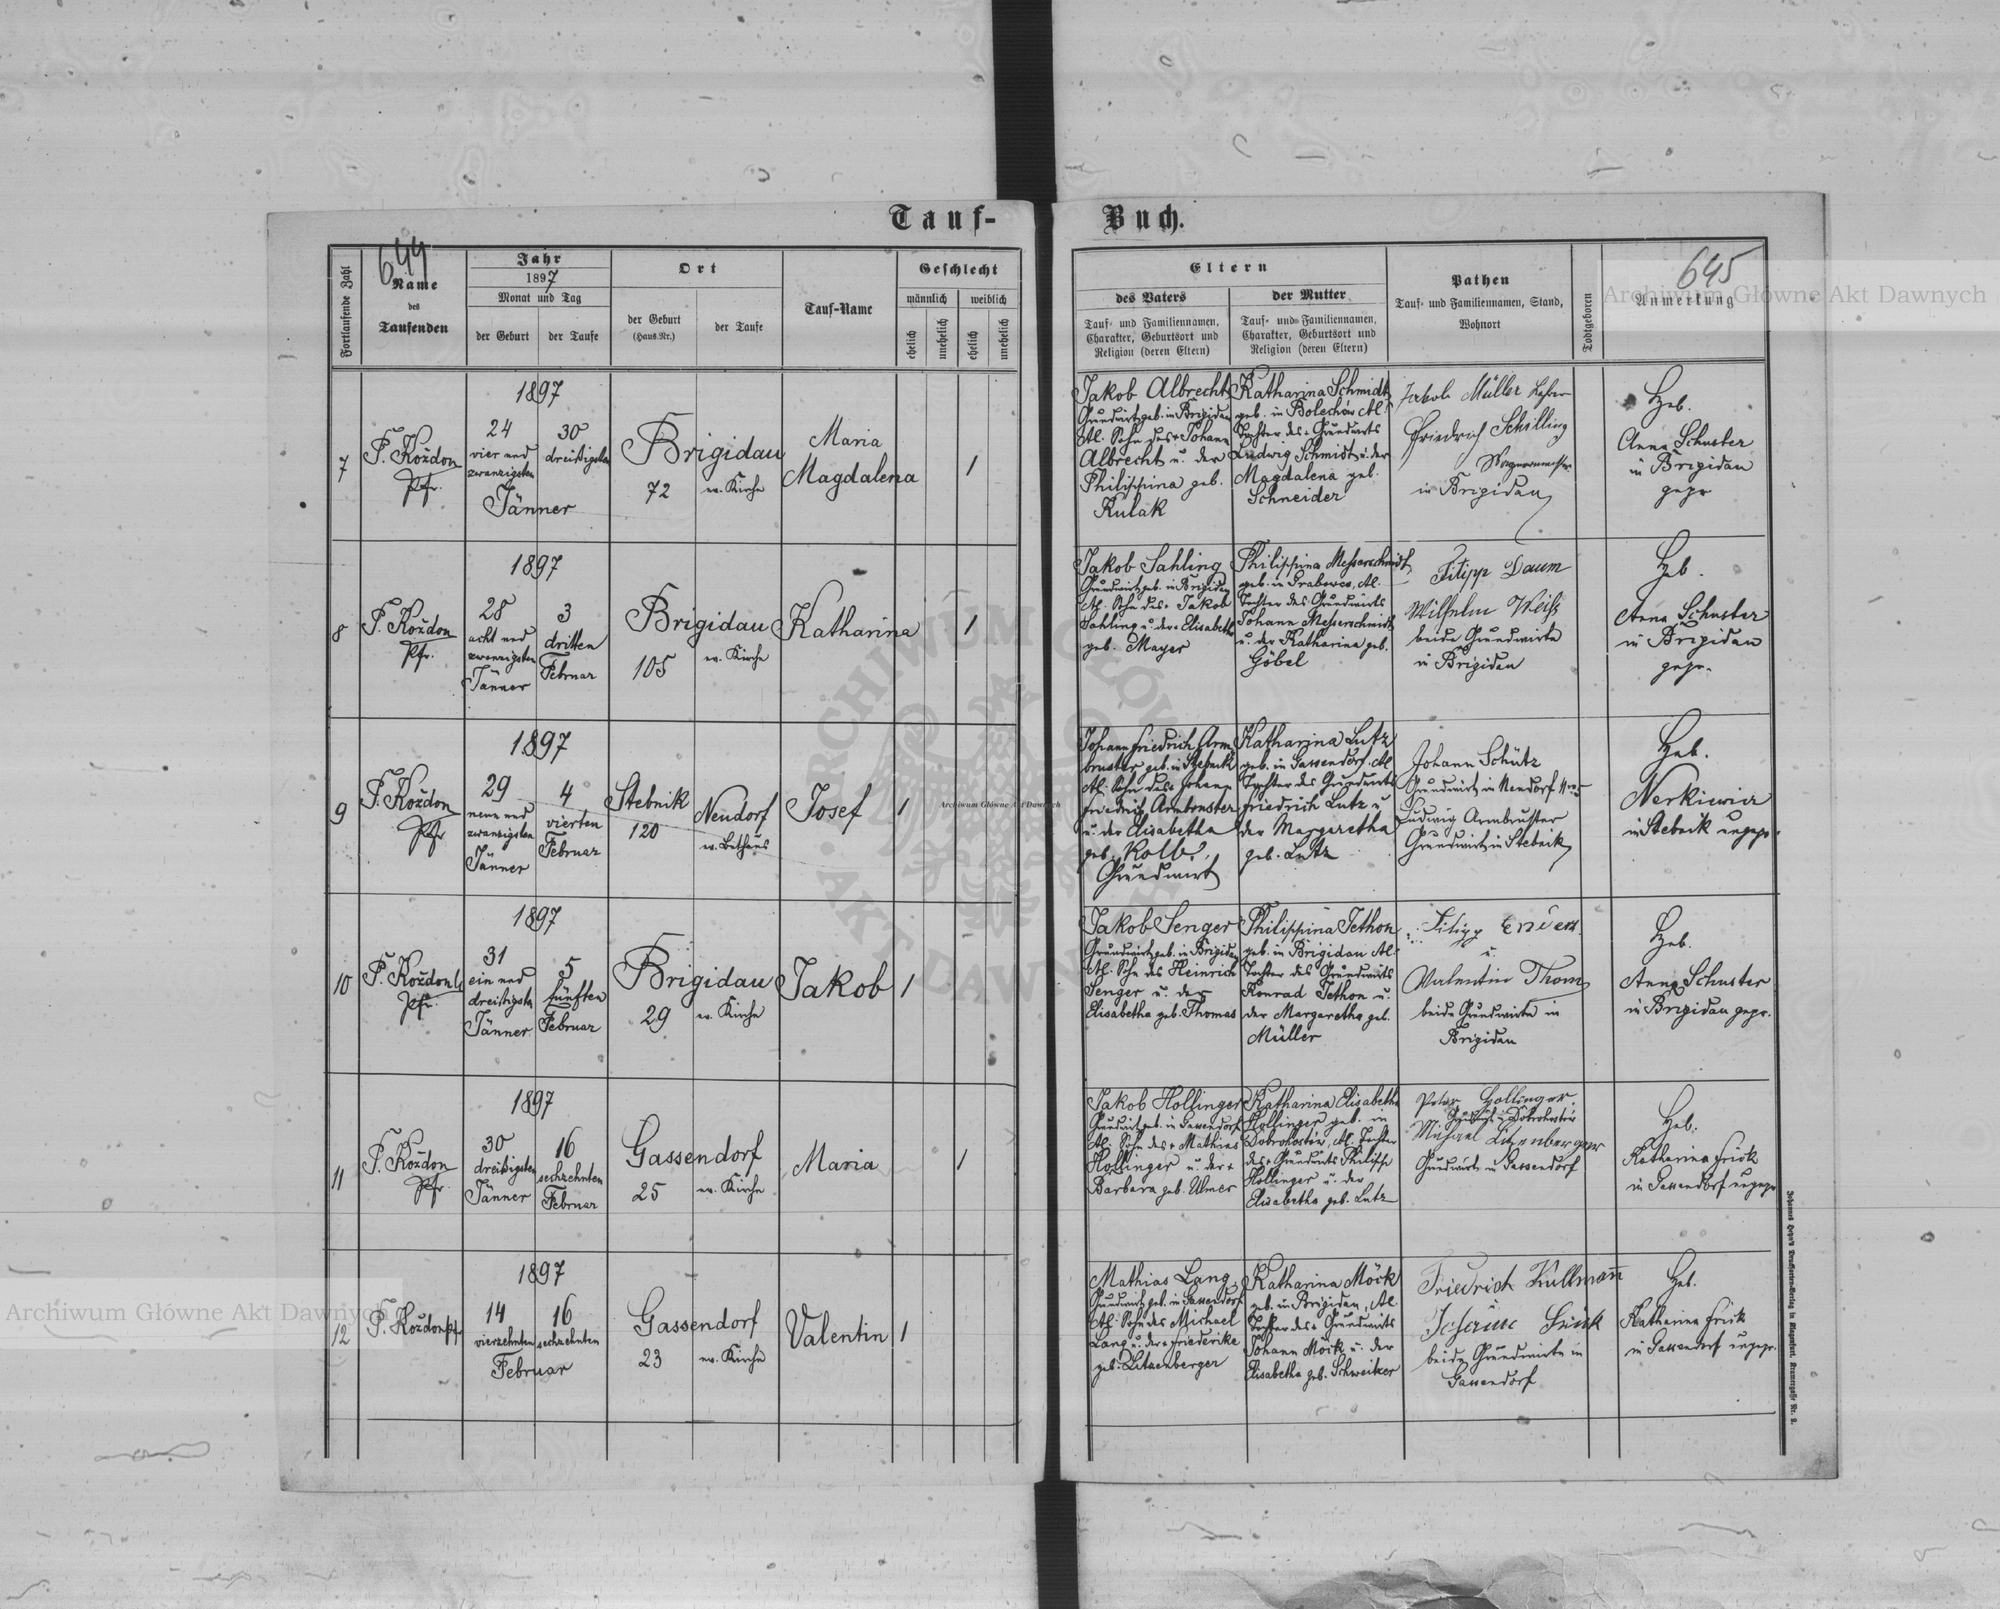 Tauf-
Buch.
644
645
Fortlaufende Zahl
Name
des
Taufenden
Jahr
1897
Monat und Tag
der Geburt
der Taufe
Ort
der Geburt
(Haus-Nr.)
der Taufe
Tauf-Name
Geschlecht
männlich
weiblich
ehelich
unehelich
ehelich
unehelich
Eltern
des Vaters
Tauf- und Familiennamen,
Charakter, Geburtsort und
Religion (deren Eltern)
der Mutter
Tauf- und Familiennamen,
Charakter, Geburtsort und
Religion (deren Eltern)
Pathen
Tauf- und Familiennamen, Stand,
Wohnort
Todtgeboren
Anmerkung
7
F. Koždon
Pfr.
1897
24
vier und
zwanzigsten
Jänner
30
dreißigsten
Brigidau
72
ev. Kirche
Maria
Magdalena
1
Jakob Albrecht
Grundwirt geb. in Brigidau
Al. Sohn des + Johann
Albrecht u. der
Philippina geb.
Kulak
Katharina Schmidt
geb. in Bolechów Al.
Tochter des + Grundwirts
Ludwig Schmidt u. der
Magdalena geb.
Schneider
Jakob Müller Lehrer
Friedrich Schilling
Wagnermeister
in Brigidau
Heb.
Anna Schuster
in Brigidau
gepr
8
F. Koždon
Pfr.
1897
28
acht und
zwanzigsten
Jänner
3
dritten
Februar
Brigidau
105
ev. Kirche
Katharina
1
Jakob Sahling
Grundwirt geb. in Brigidau
Al. Sohn des + Jakob
Sahling u. der + Elisabetha
geb. Mayer
Philippina Messerschmidt
geb. in Al.
Tochter des Grundwirts
Johann Messerschmidt
u. der Katharina geb.
Göbel
Filipp Daum
Wilhelm Weiß
beide Grundwirte
in Brigidau
Heb.
Anna Schuster
in Brigidau
gepr.
9
F. Koždon
Pfr
1897
29
neun und
zwanzigsten
Jänner
4
vierten
Februar
Stebnik
120
Neudorf
ev. Bethaus
Josef
1
Johann Friedrich Arm
bruster geb. in Stebnik
Al. Sohn des Johann
Friedrich Armbruster
u. der Elisabetha
geb. Kolb.
Grundwirt
Katharina Lutz
geb. in Gassendorf, Al.
Tochter des Grundwirts
Friedrich Lutz u
der Margaretha
geb. Lutz
Johann Schütz
Grundwirt in Neudorf
Ludwig Armbruster
Grundwirt in Stebnik
Heb.
in Stebnik ungepr.
10
F. Koždon
Pfr.
1897
31
ein und
dreißigsten
Jänner
5
fünften
Februar
Brigidau
29
ev. Kirche
Jakob
1
Jakob Senger
Grundwirt geb. in Brigidau
Al. Sohn des Heinrich
Senger u. der
Elisabetha geb. Thomas
Philippina Tethon
geb. in Brigidau Al.
Tochter des Grundwirts
Konrad Tethon u.
der Margaretha geb.
Müller
Filipp Enders
u.
Valentin Thom
beide Grundwirte in
Brigidau
Heb.
Anna Schuster
in Brigidau gepr.
11
F. Koždon
Pfr.
1897
30
dreißigsten
Jänner
16
sechzehnten
Februar
Gassendorf
25
ev. Kirche
Maria
1
Jakob Hollinger
Grundwirt geb. in Gassendorf
Al. Sohn des + Mathias
Hollinger u. der +
Barbara geb. Ulmer
Katharina Elisabetha
Hollinger geb. in
Dobrohostów, Al. Tochter
des + Grundwirts Philipp
Hollinger u. der
Elisabetha geb. Lutz
Peter Hollinger
Grundwirt in Dobrohostów
Michael Litzenberger
Grundwirt in Gassendorf
Heb.
Katharina Frick
in Gassendorf ungepr
12
F. Koždon Pfr
1897
14
vierzehnten
16
sechzehnten
Februar
Gassendorf
23
ev. Kirche
Valentin
1
Mathias Lang
Grundwirt geb. in Gassendorf
Al. Sohn des Michael
Lang u. der + Friederike
geb. Litzenberger
Katharina Möck
geb. in Brigidau, Al.
Tochter des + Grundwirts
Johann Möck u. der
Elisabetha geb. Schweitzer
Friedrich Kullmann
beide Grundwirte in
Gassendorf
Heb.
Katharina Frick
in Gassendorf ungepr.
Archiwum Główne Akt Dawnych
Archiwum Główne Akt Dawnych
Archiwum Główne Akt Dawnych
ARCHIWUM GŁÓWNE AKT DAWNYCH